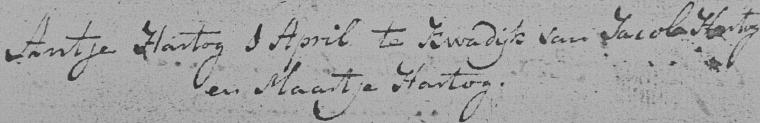 Antje Hartog 8 April te Kwadijk van Jacob Hartog
en Maartje Hartog.